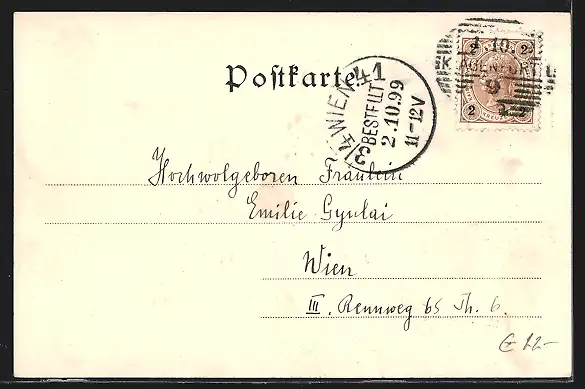 1. 10.
2 2
KLAGENFURT
9
2 2
KREUZER
Postkarte.
3/4 WIEN 41
BESTELLT
2.10.99
11-12V
Hochwolgeboren Fräulein
Emilie Gyulai
Wien
III. Rennweg 65 Th. 6.
€ 22-